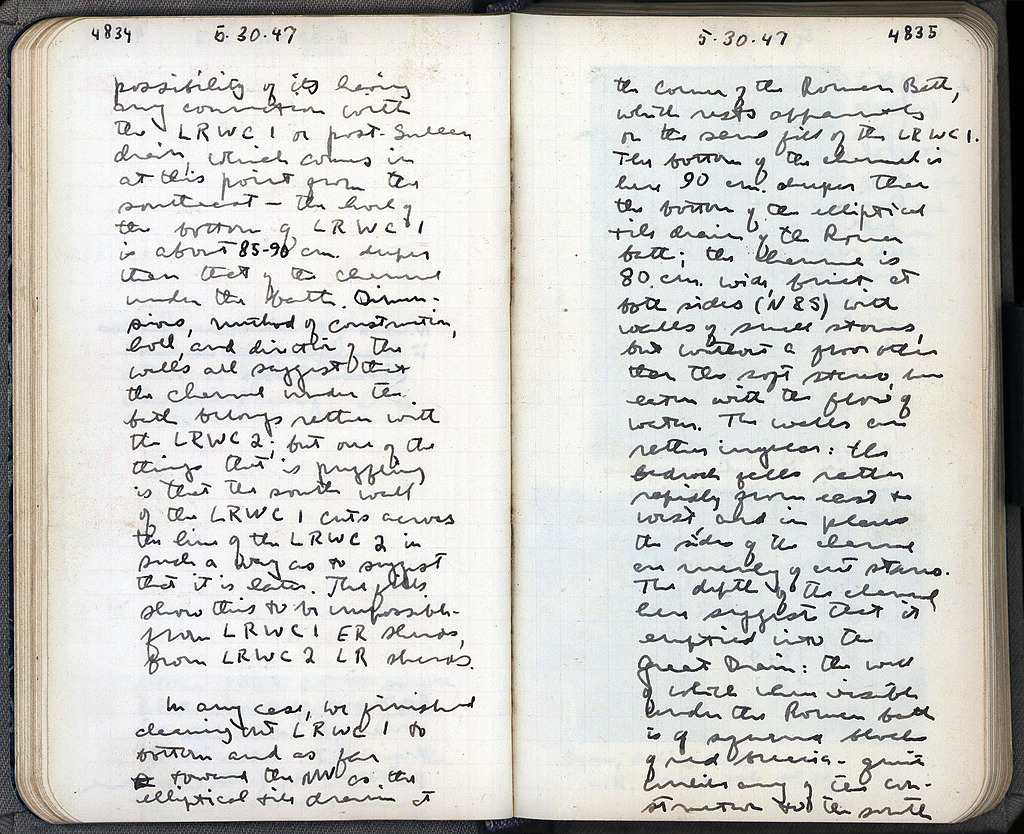 4834
5.30.47
possibility of its having
any connection with
the LRWC 1 or post-Sullan
drain, which comes in
at this point from the
southeast – the
the bottom of LRWC 1
is about 85-90 cm. deeper
than that of the channel
under the bath. Dimen-
sions, method of construction,
and direction of the
walls all suggest that
the channel under the
bath belongs rather with
the LRWC 2; but one of the
things that is puzzling
is that the south wall
of the LRWC 1 cuts across
the line of the LRWC 2 in
such a way as to suggest
that it is later. The
show this to be impossible-
from LRWC 1 ER sherds,
from LRWC 2 LR sherds.
In any case, we finished
cleaning out LRWC 1 to
bottom and as far
toward the NW as the
elliptical tile drain at
5.30.47
4835
the corner of the Roman Bath,
which rests apparently
on the sand fill of the LRWC 1.
The bottom of the channel is
here 90 cm. deeper than
the bottom of the elliptical
tile drain of the Roman
bath; the channel is
80 cm. wide, at
both sides (N & S) with
walls of small stones,
but without a floor other
than the soft stereo, here
eaten with the flow of
water. The walls are
rather irregular: the
bedrock falls rather
rapidly from east to
west, and in places
the sides of the channel
are merely of cut stereo.
The depth of the channel
here suggest that it
emptied into the
Great Drain: the wall
of which when visible
under the Roman bath
is of squared blocks
of red breccia - quite
unlike any of the con-
struction to the south